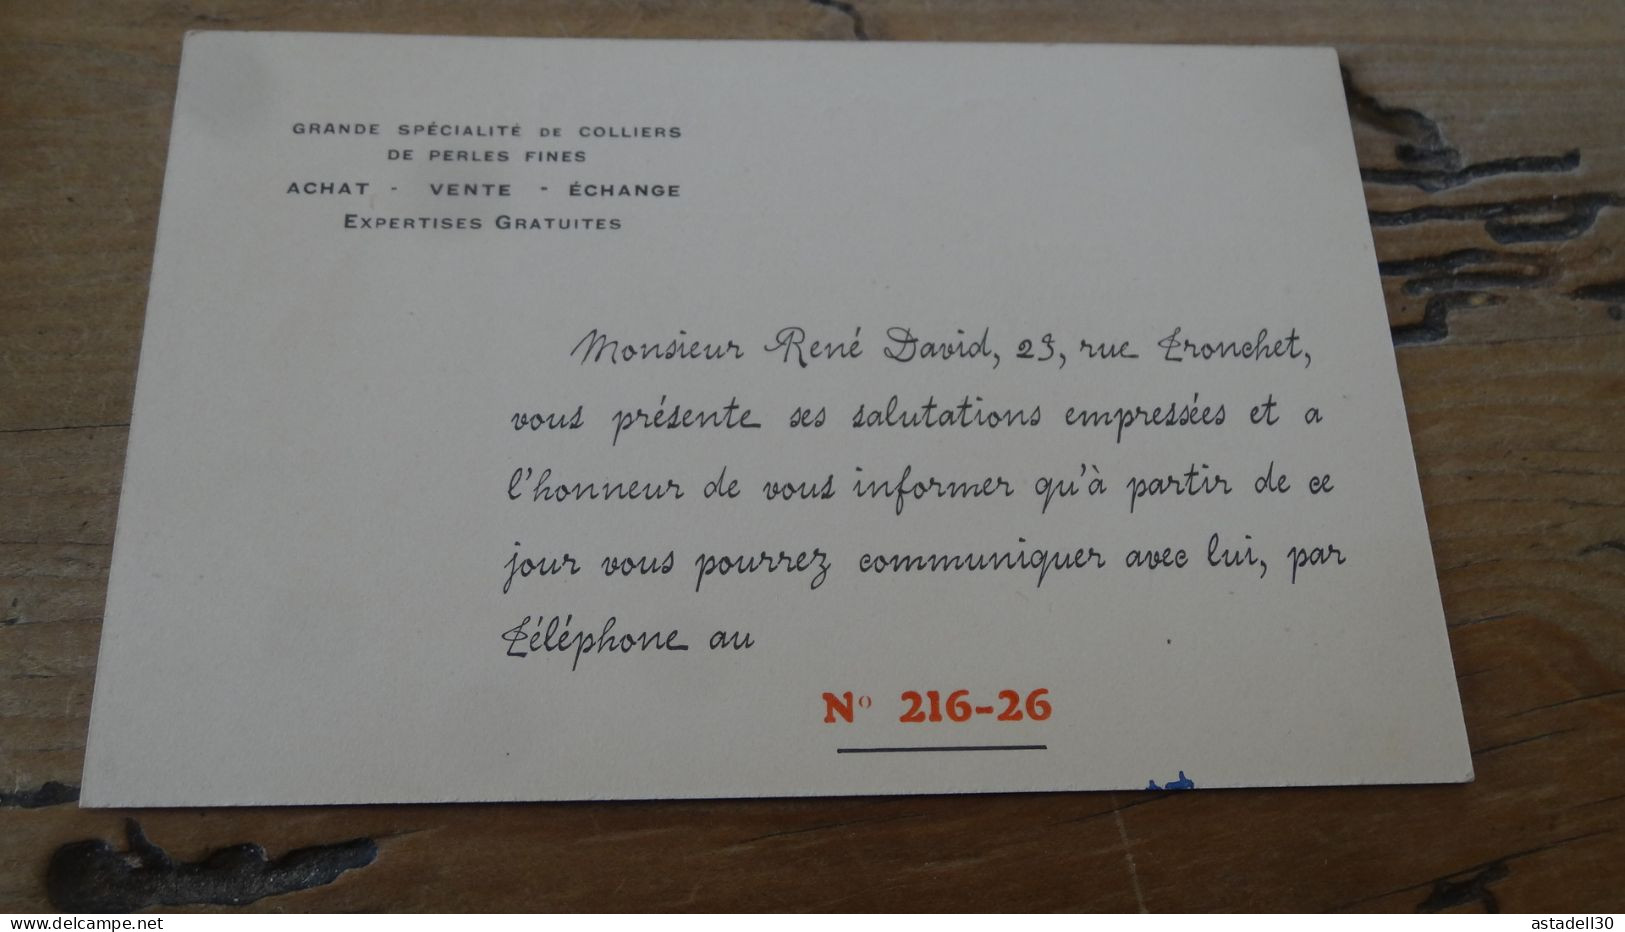 GRANDE SPÉCIALITÉ DE COLLIERS
DE PERLES FINES
ACHAT - VENTE - ÉCHANGE
EXPERTISES GRATUITES
Monsieur René David, 23, rue Tronchet,
vous présente ses salutations empressées et a
l'honneur de vous informer qu'à partir de ce
jour vous pourrez communiquer avec lui, par
Téléphone au
No 216-26
www.delcampe.net
astadell30